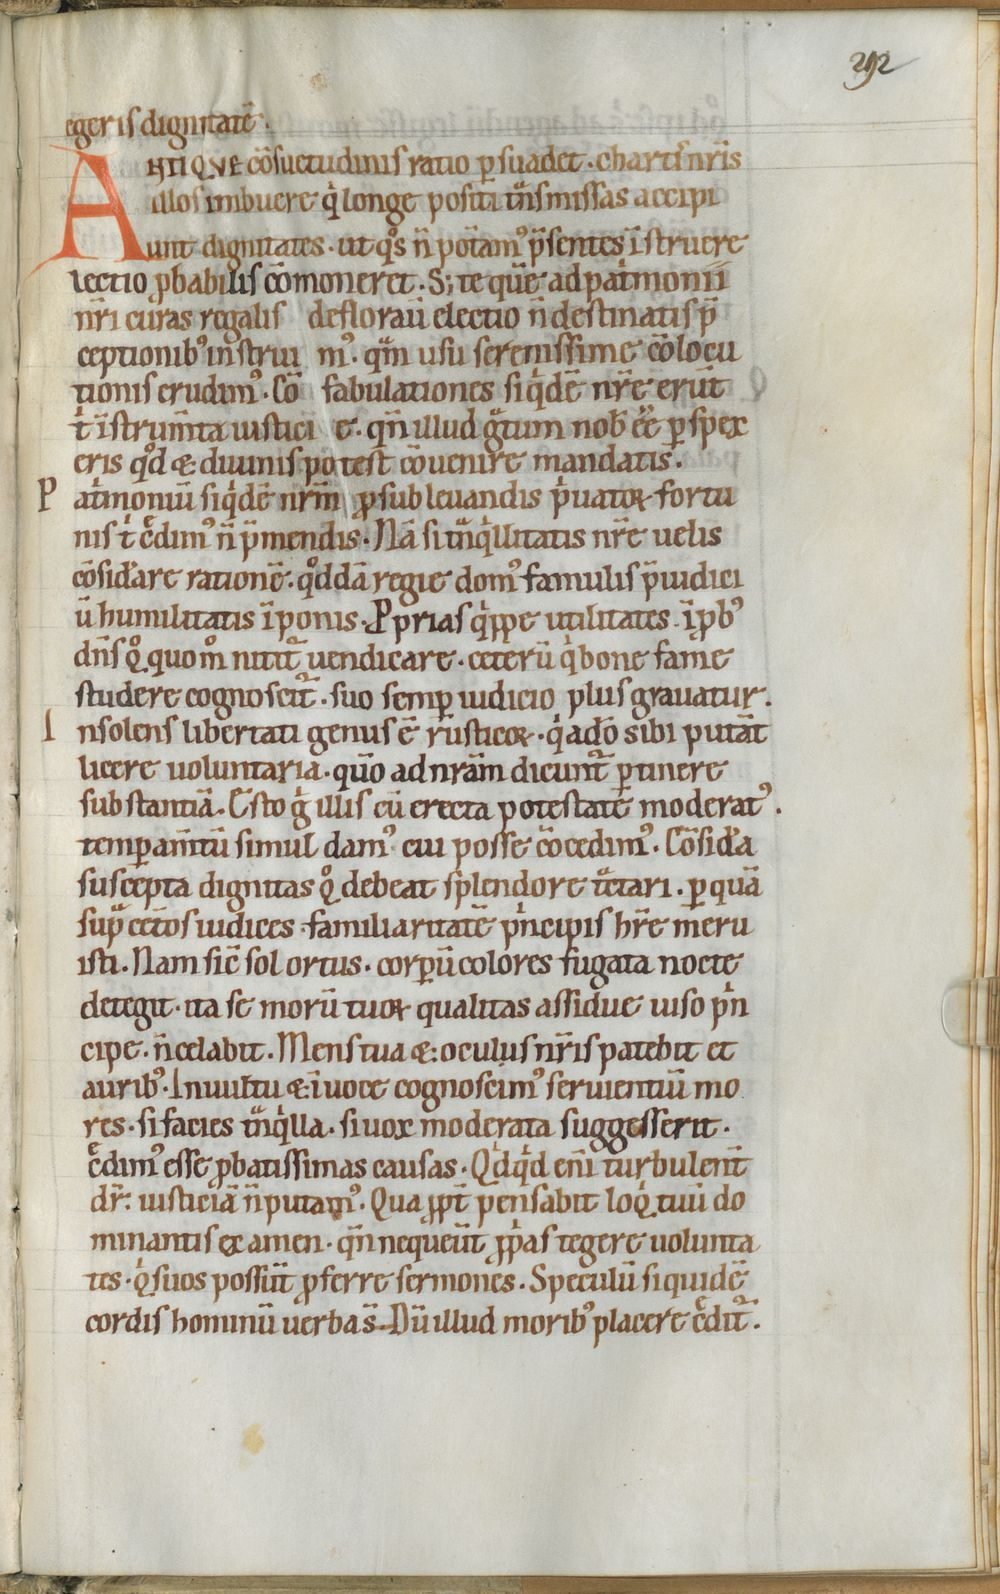 292
egeris dignitatē.
ANTIQVE cōsuetudinis ratio ꝑsuadet. chartis nr̄is
illos imbuere qͥ longe positi tͣnsmissas accipi
unt dignitates. ut qͦs n̄ poteͣramꝰ p̄sentes īstruere
lectio ꝓbabilis cōmoneret. S; te quē ad patͥmonii
nr̄i curas regalis deflorauit electio n̄ destinatis p̄
ceptionibꝰ instrui mꝰ. qm̄ usu serenissime cōlocu
tionis erudimꝰ. Cō fabulationes siqͥdē nr̄e erūt
t̄ īstrum̄ta iusticie. qn̄ illud gͣtum nob̄ eē ꝑspex
eris qͦd & diuinis potest cōuenire mandatis.
Patͥmoniū siqͥdē nrm̄ ꝓ subleuandis pͥuatoꝝ fortu
nis t̄ c̄dimꝰ n̄ p̄mendis. Nā si tͣnqͥllitatis nr̄e uelis
cōsid̓are rationē. qͦddā regie domꝰ famulis p̄iudici
ū humilitatis īponis. Pprias qͥppe utilitates īꝓbꝰ
dn̄s qͦ quomͦ nitit̄ uendicare. ceterū qͥ bone fame
studere cognoscit̄. suo semꝑ iudicio plus grauatur.
Insolens libertati genus ē rusticoꝝ. qͥ adō sibi putāt
licere uoluntaria. quō ad nrām dicunt̄ ꝑtinere
substantiā. Esto gͦ illis cū erecta potestate moderatꝰ.
temꝑam̄tū simul damꝰ cui posse cōcedimꝰ. Cōsid̓a
suscepta dignitas qͦ debeat splendore tͣctari. ꝑ quā
supͣ cet̄os iudices familiaritatē pͥncipis hr̄e meru
isti. Nam sic̄ sol ortus. corporū colores fugata nocte
detegit. ita se morū tuoꝝ qualitas assidue uiso pͥn
cipe. n̄ celabit. Mens tua & oculus nr̄is patebit et
auribꝰ. In uultu & ī uoce cognoscimꝰ seruientiū mo
res. si facies tͣnqͥlla. si uox moderata suggesserit.
c̄dimꝰ esse ꝓbatissimas causas. Qͥdqͥd eni̅ turbulent̄
dr̄. iusticiā n̄ putamꝰ. Qua ꝓpt̄ pensabit loqͥ tuū do
minantis examen. qn̄ nequeūt ꝓpͥas tegere uolunta
tes. qͥ suos possūt ꝓferre sermones. Speculū siquidē
cordis hominū uerba s̄. Dū illud moribꝰ placere c̄dit̄.